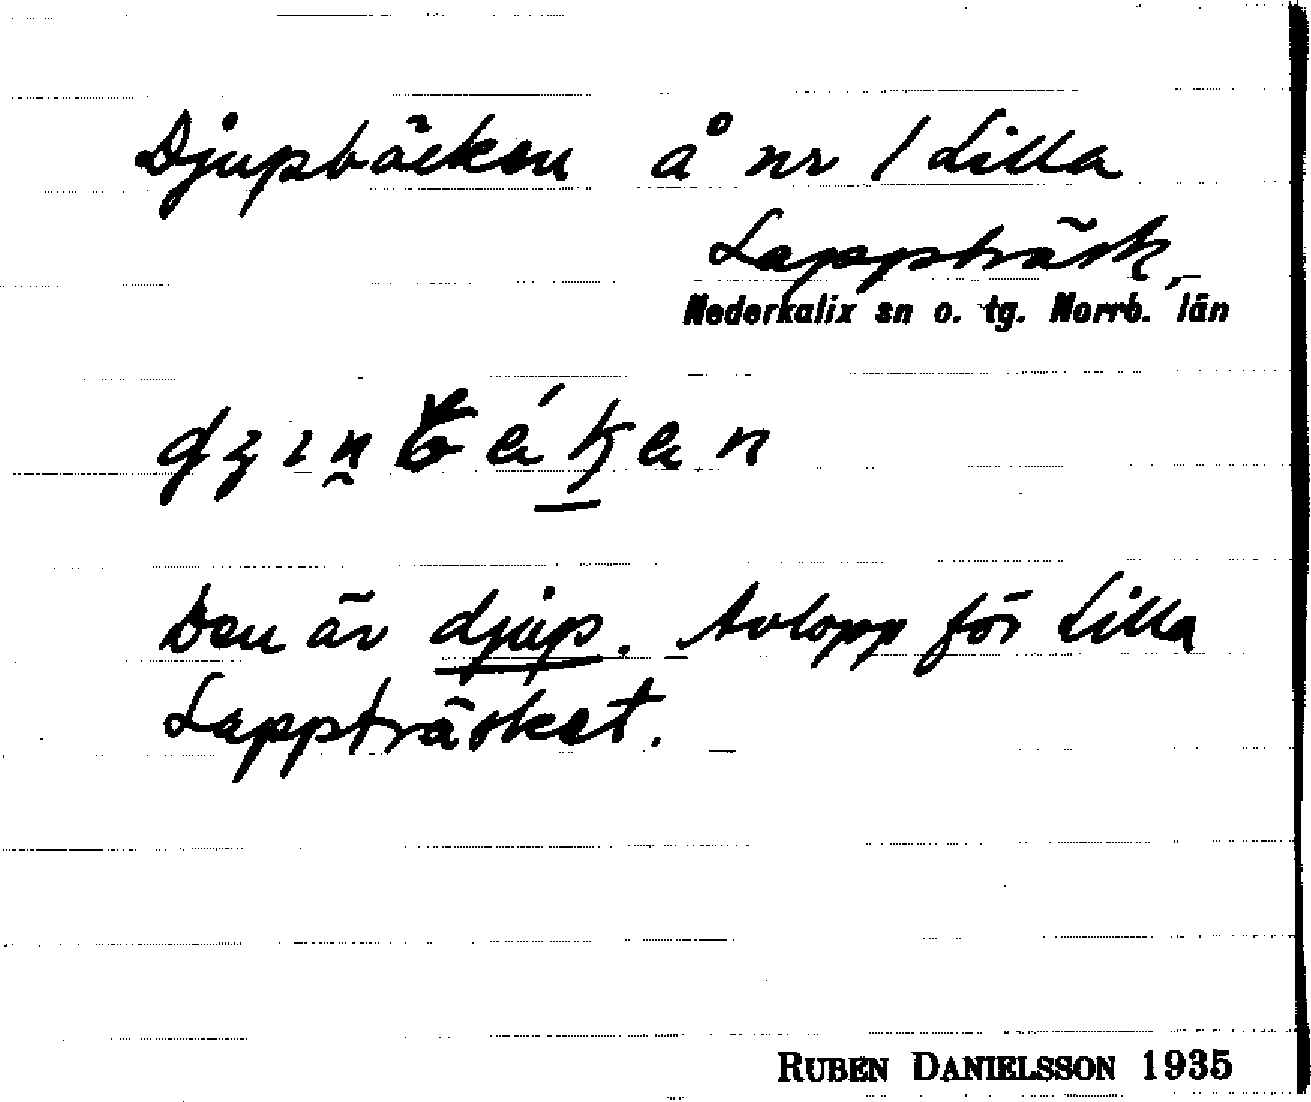 Djupbäcken å nr 1 Lilla
Lappträsk,
Nederkalix sn o. tg. Norrb. län
Den är djúp. Avlopp för Lilla
Lappträsket.
RUBEN DANIELSSON 1935